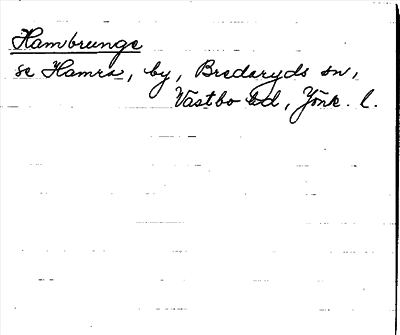 Hambrunge
se Hamra, by, Bredaryds sn,
Västbo hd, Jönk. l.